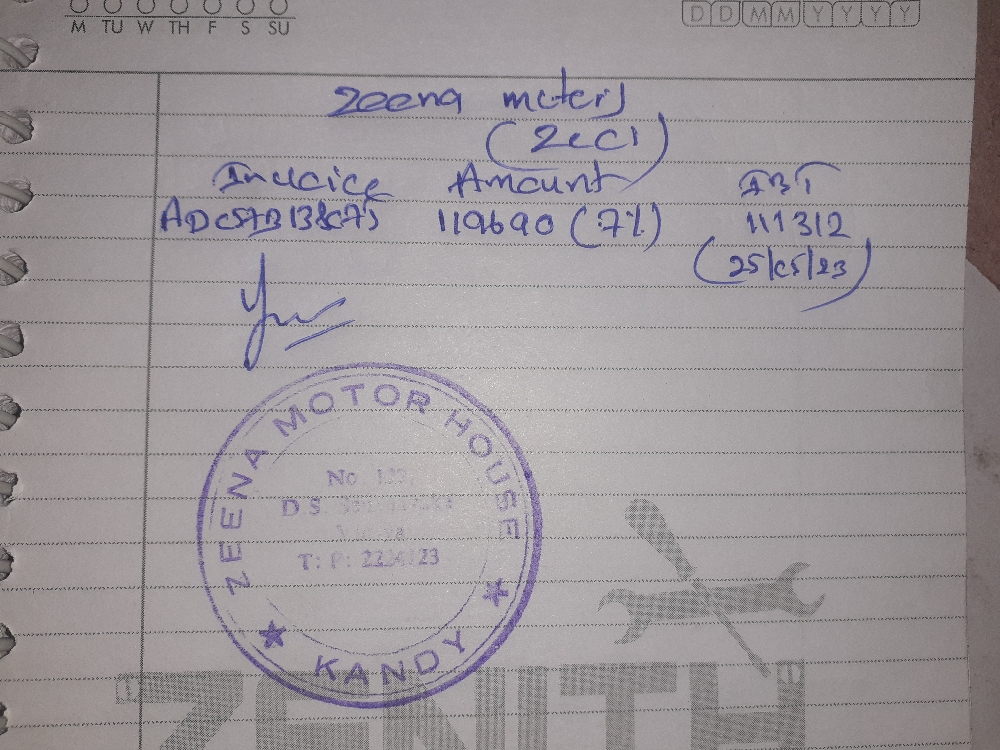 M TU W TH F S SU
D D M M Y Y Y Y
Zeena motors
(Zec1)
Invoice Amount IBT
119690 (7%) 111312
(25/05/23)
ZEENA MOTOR HOUSE
No
D.S.
T: P:
KANDY
ZENITH